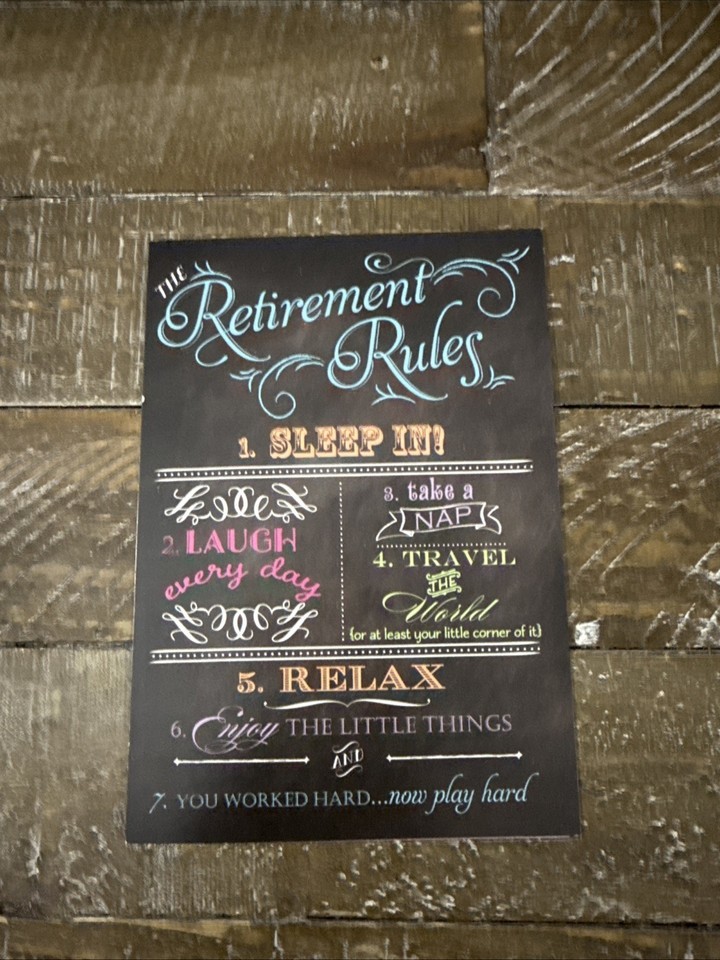 THE
Retirement
Rules
1. SLEEP IN!
2. LAUGH
every day
3. take a
NAP
4. TRAVEL
THE
World
{or at least your little corner of it}
5. RELAX
6. Enjoy THE LITTLE THINGS
AND
7. YOU WORKED HARD...now play hard